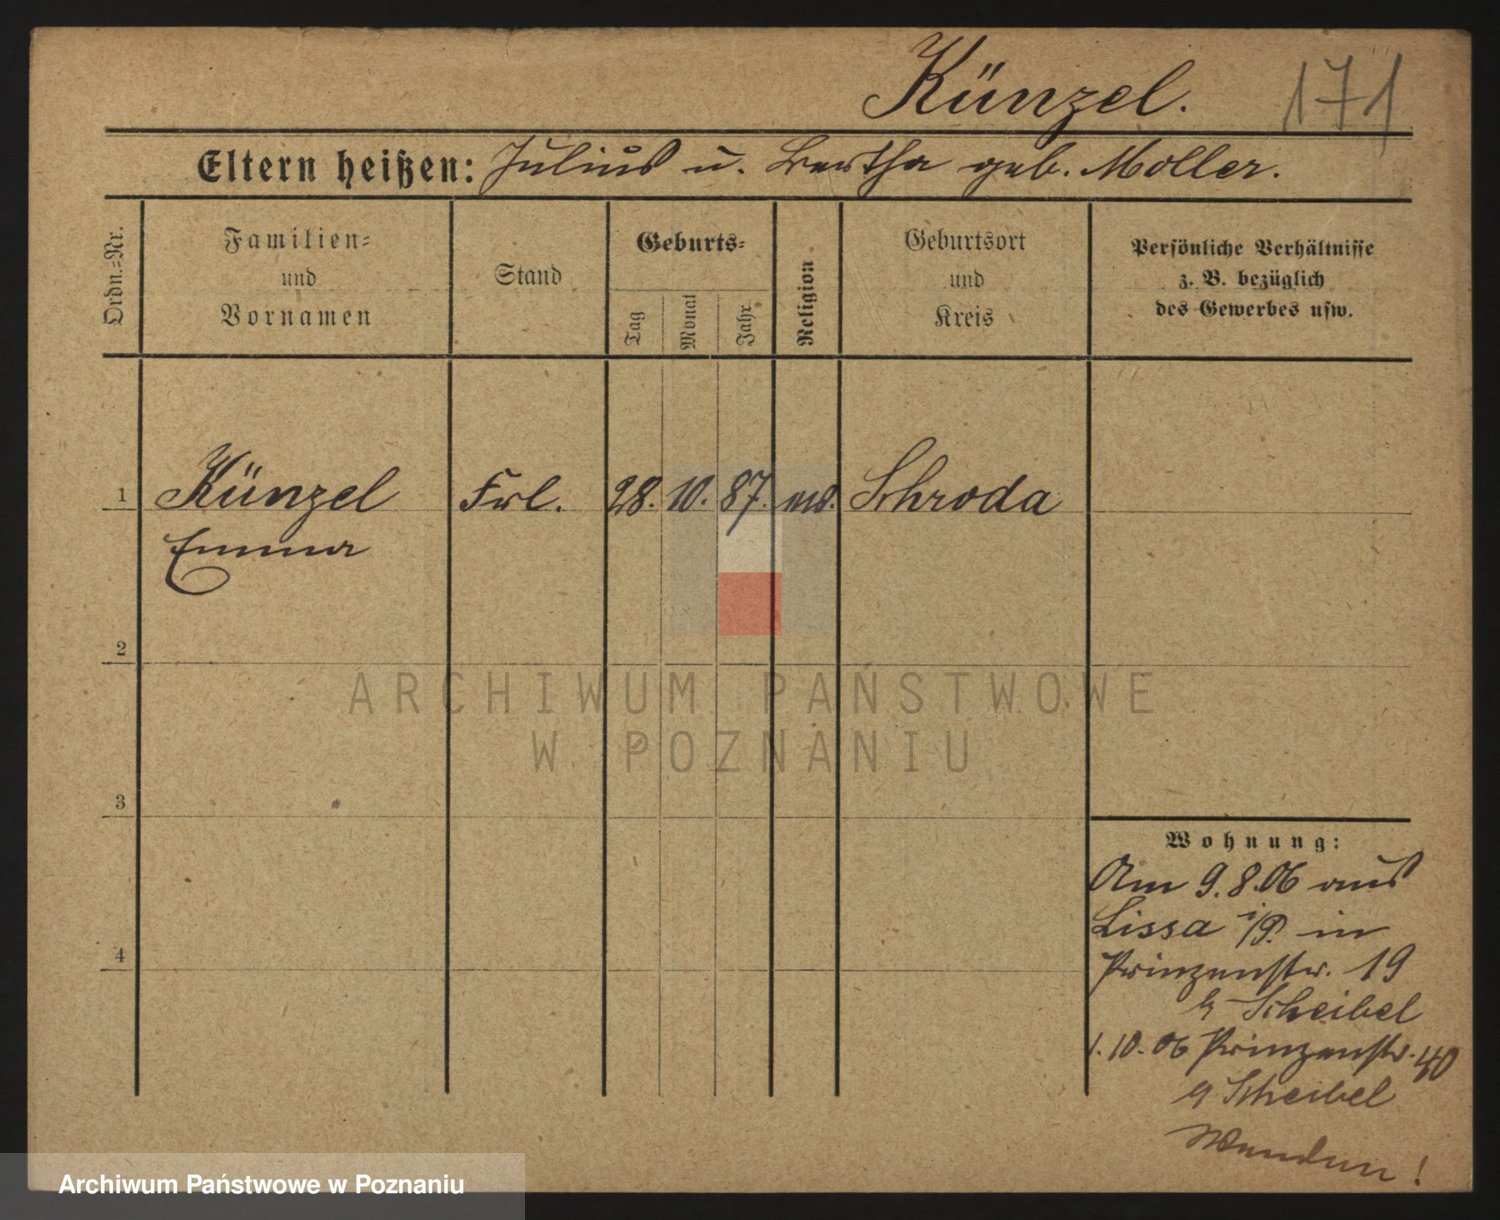 Künzel.
171
Eltern heißen: Julius u. Bertha geb. Moller.
Ordn.=Nr.
Familien=
und
Vornamen
Stand
Geburts=
Tag
Monat
Jahr
Religion
Geburtsort
und
Kreis
Persönliche Verhältnisse
z. B. bezüglich
des Gewerbes usw.
1 Künzel Frl. 28. 10. 87. Schroda
Emma
2
3
4
Wohnung:
Am 9.8.06 aus
Lissa i/P. in
Prinzenstr. 19
b Scheibel
1.10.06 Prinzenstr. 40
b Scheibel
Wenden!
ARCHIWUM PAŃSTWOWE
W POZNANIU
Archiwum Państwowe w Poznaniu